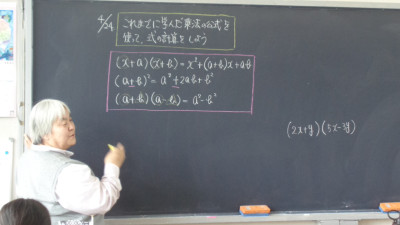 4/24
これまでに学んだ乗法の公式を
使って、式の計算をしよう
(x+a)(x+b)=x²+(a+b)x+ab
(a±b)²=a²±2ab+b²
(a+b)(a-b)=a²-b²
(2x+y)(5x-3y)